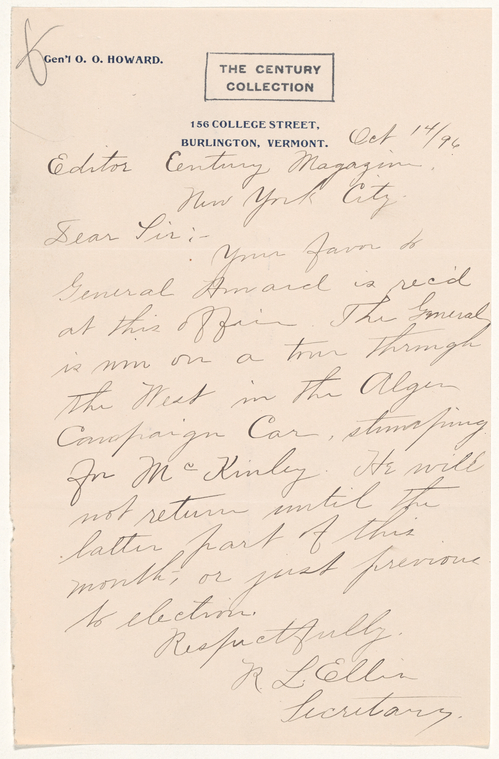 8
Gen'l O. O. HOWARD.
THE CENTURY
COLLECTION
156 COLLEGE STREET,
BURLINGTON, VERMONT.
Oct 14/96
Editor Century Magazine.
New York City.
Dear Sir;-
Your favor to
General Howard is rec'd
at this office. The General
is now on a tour through
the West in the Alger
Campaign Car, stumping
for McKinley. He will
not return until the
latter part of this
month, or just previous
to election.
Respectfully.
R L Ellin
Secretary.